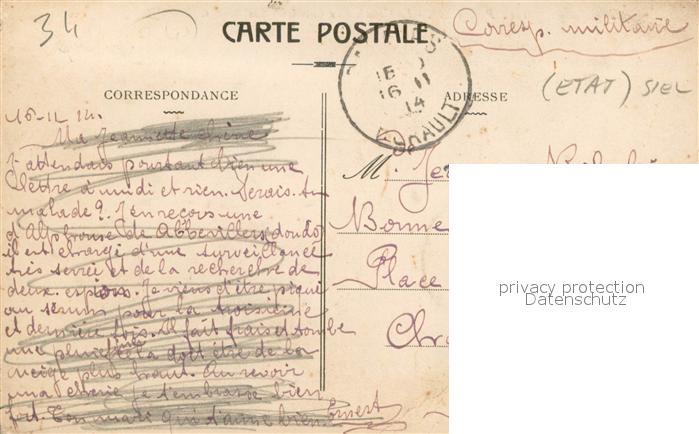 34
CARTE POSTALE
Corresp. militaire
15 11
16
14
HÉRAULT
CORRESPONDANCE
ADRESSE
(ETAT) SIEL
16-11 14.
Ma Jeannette chérie
J'attendais pourtant bien une
lettre à midi et rien. Serais-tu
malade ? J'en reçois une
d'Alphonse de Abbevillers dont
il est chargé d'une surveillance
très serrée et de la recherche de
deux espions. Je viens d'être piqué
au sérum pour la troisième
et dernière fois. Il fait frais et tombe
une pluie fine la doit être de la
neige plus haut. Au revoir
ma chérie je t'embrasse bien
fort. Ton mari qui t'aime bien Ernest
M.
Bonne
Place
privacy protection
Datenschutz